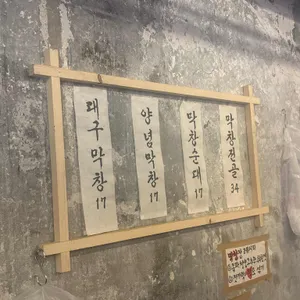 대구막창
17
양념막창
17
막창순대
17
막창전골
34